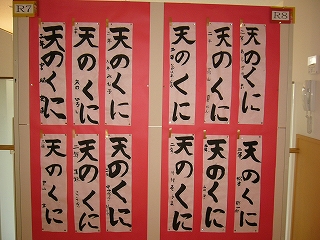 R7
R8
天のくに
天のくに
天のくに
天のくに
天のくに
天のくに
天のくに
天のくに
天のくに
天のくに
天のくに
天のくに